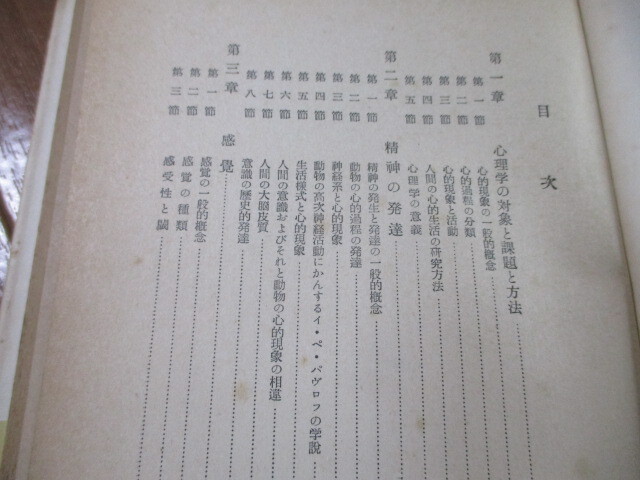 目次
第一章 心理学の対象と課題と方法
第一節 心的現象の一般的概念
第二節 心的過程の分類
第三節 心的現象と活動
第四節 人間の心的生活の研究方法
第五節 心理学の意義
第二章 精神の発達
第一節 精神の発生と発達の一般的概念
第二節 動物の心的過程の発達
第三節 神経系と心的現象
第四節 動物の高次神経活動にかんするイ・ペ・パヴロフの学説
第五節 生活様式と心的現象
第六節 人間の意識およびそれと動物の心的現象の相違
第七節 人間の大脳皮質
第八節 意識の歴史的発達
第三章 感覚
第一節 感覚の一般的概念
第二節 感覚の種類
第三節 感受性と閾